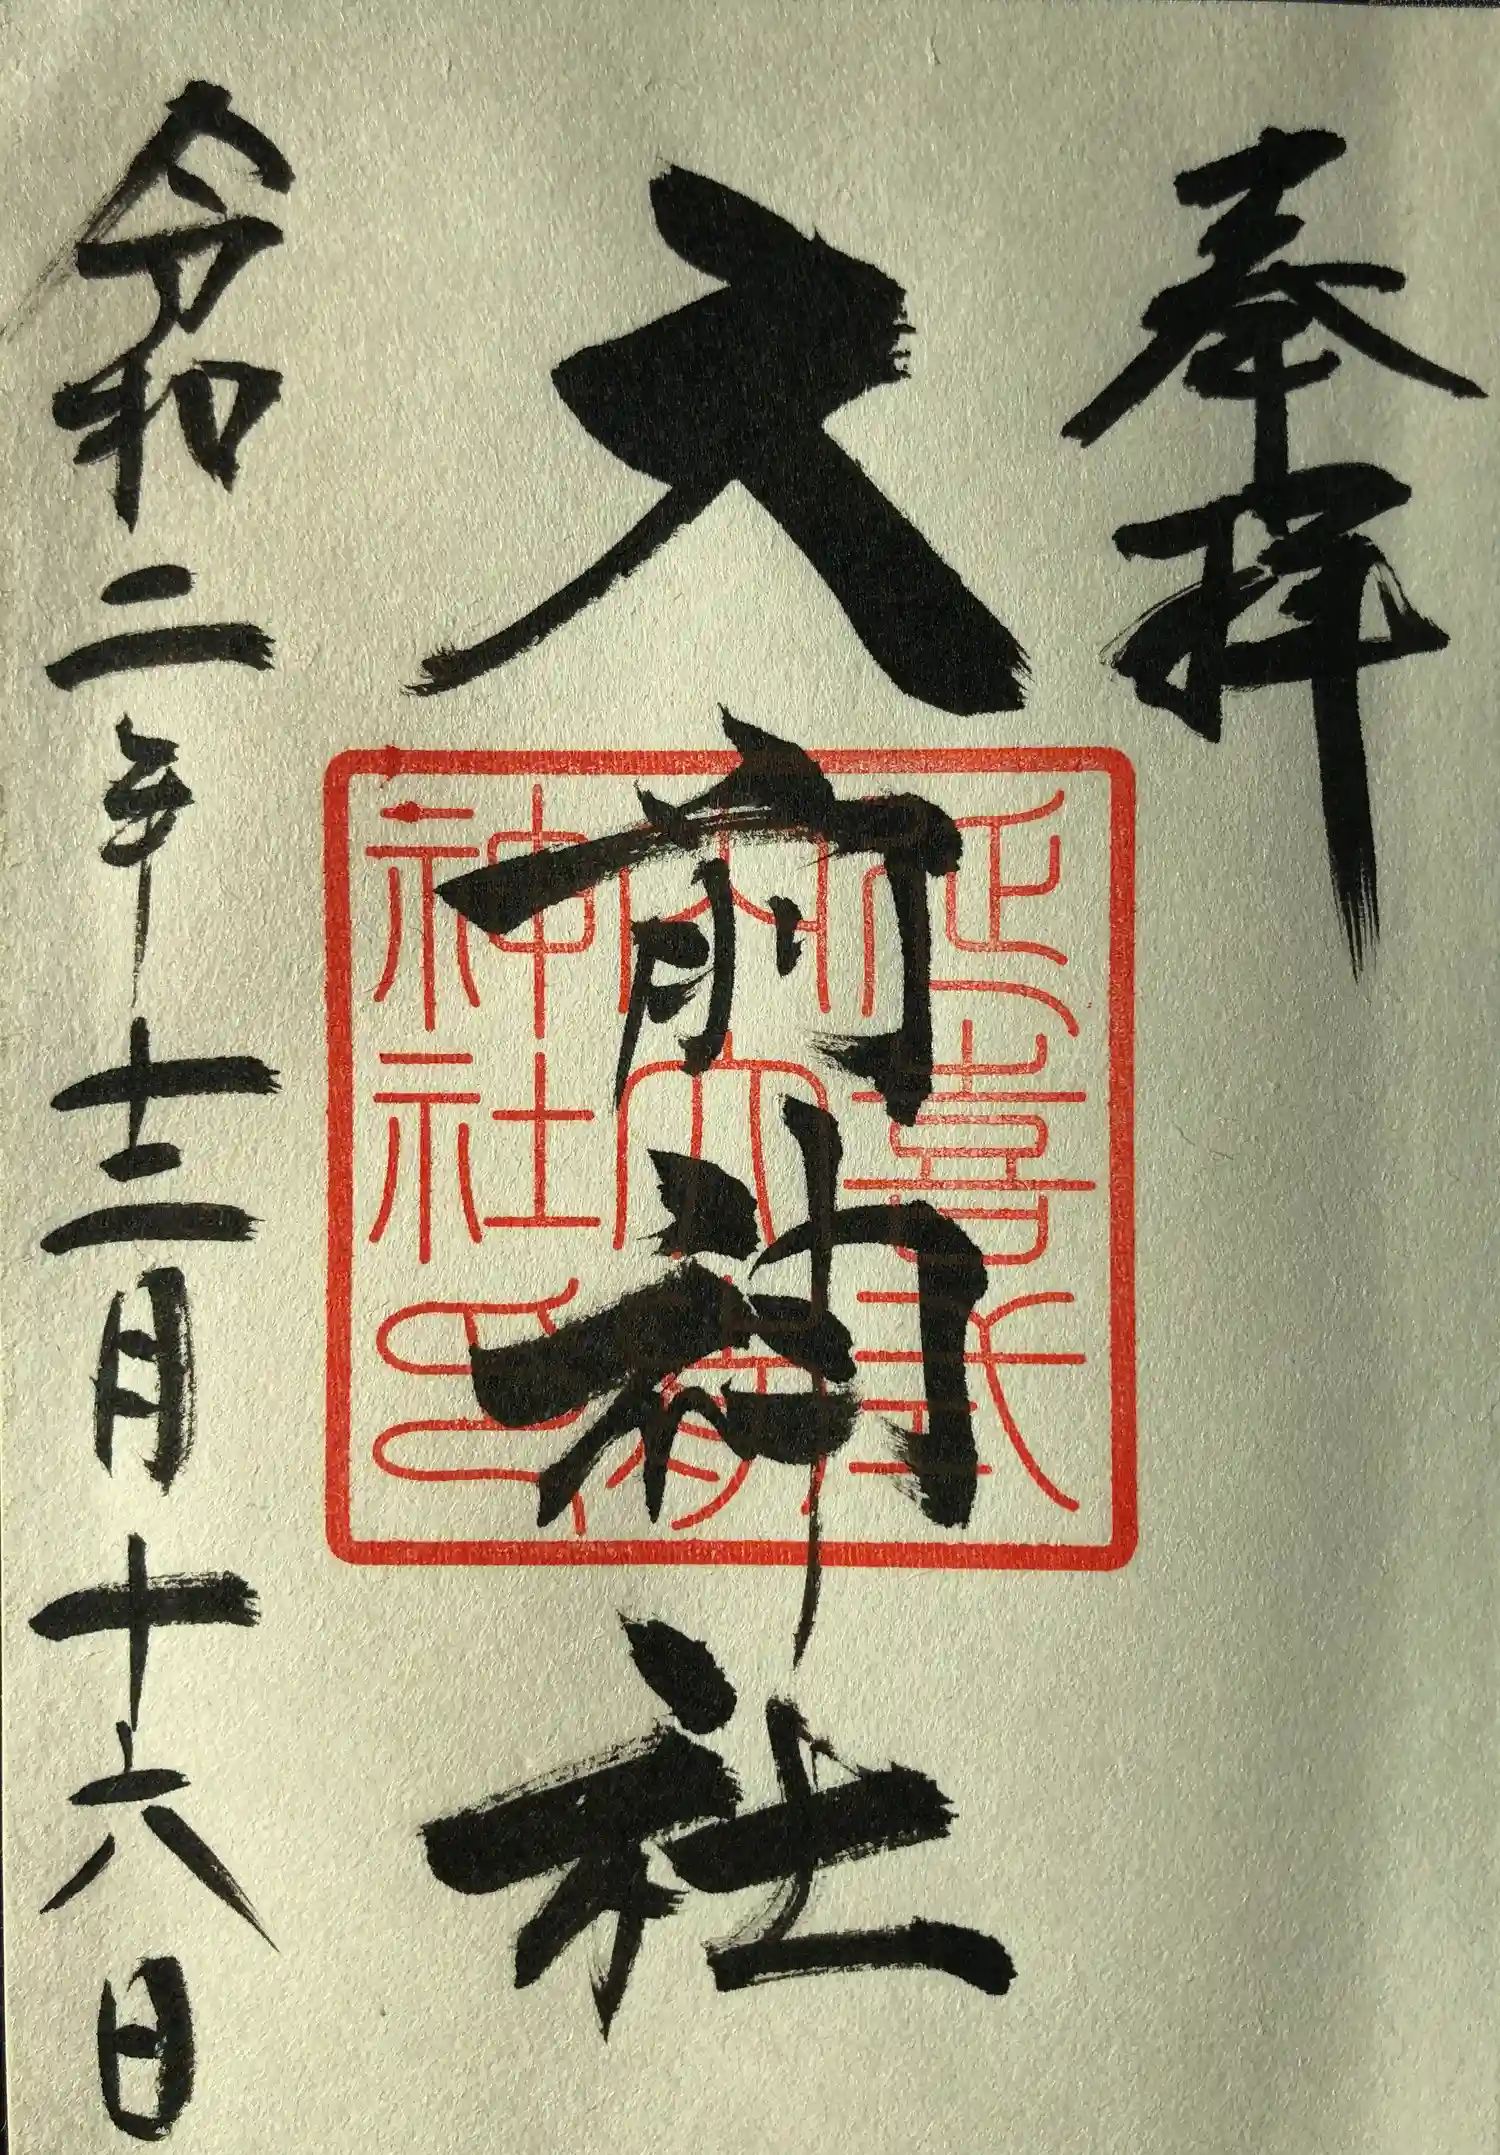 奉拝
大前神社
延喜式
内大前
神社印
令和二年十二月十六日